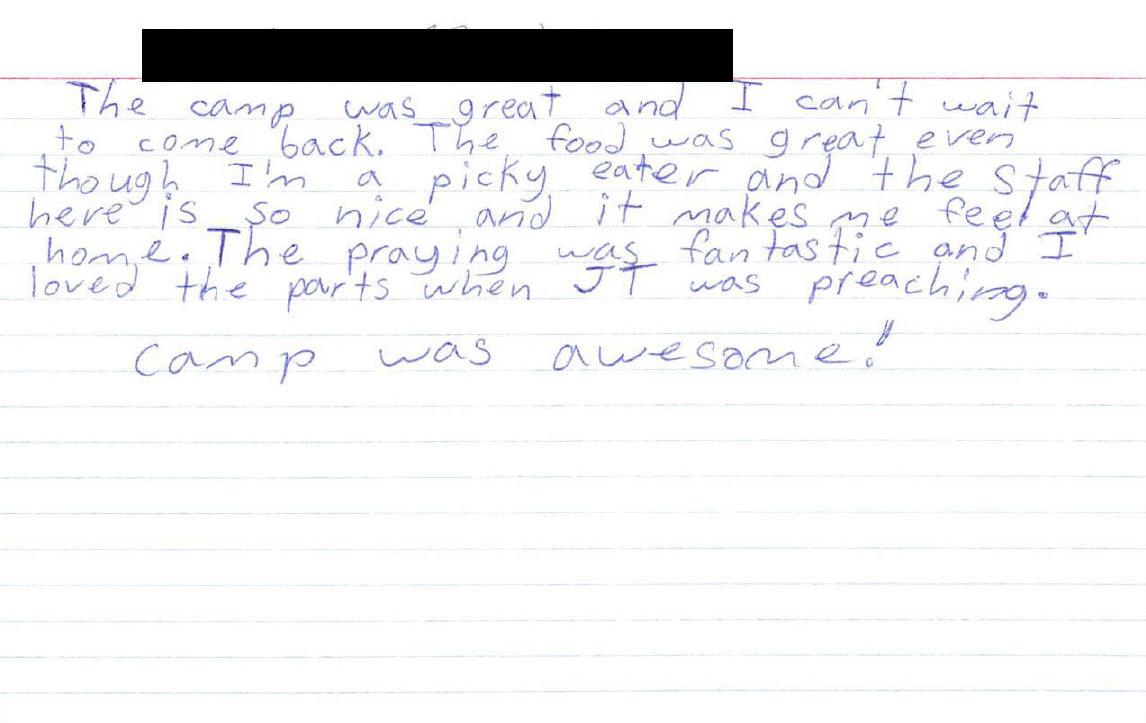 The camp was great and I can't wait
to come back. The food was great even
though I'm a picky eater and the staff
here is so nice and it makes me feel at
home. The praying was fantastic and I
loved the parts when JT was preaching.
Camp was awesome!